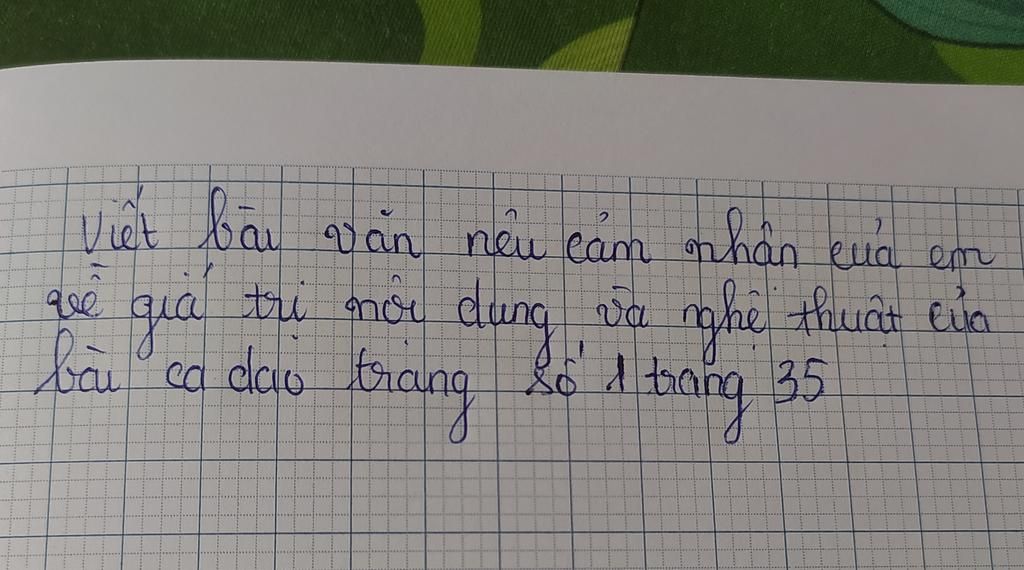 Viết bài văn nêu cảm nhận của em
về giá trị nội dung và nghệ thuật của
bài ca dao trang số 1 trang 35